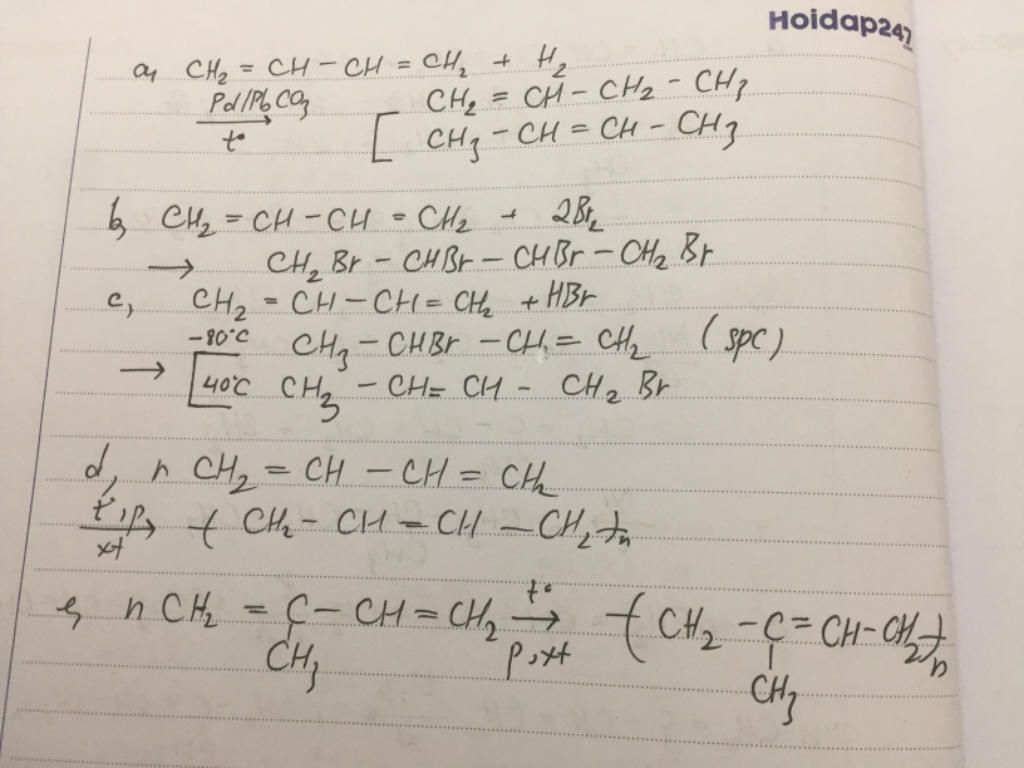 Hoidap247
a, CH₂ = CH – CH = CH₂ + H₂
Pd/PbCO₃ CH₂ = CH – CH₂ – CH₃
t° [ CH₃ – CH = CH – CH₃
b, CH₂ = CH – CH = CH₂ + 2Br₂
→ CH₂Br – CHBr – CHBr – CH₂Br
c, CH₂ = CH – CH = CH₂ + HBr
-80°C CH₃ – CHBr – CH = CH₂ (spc)
→ [ 40°C CH₃ – CH = CH – CH₂Br
d, n CH₂ = CH – CH = CH₂
t°, p
xt → ( CH₂ – CH = CH – CH₂ )n
e, n CH₂ = C – CH = CH₂ t° → ( CH₂ – C = CH – CH₂ )n
CH₃ p, xt CH₃